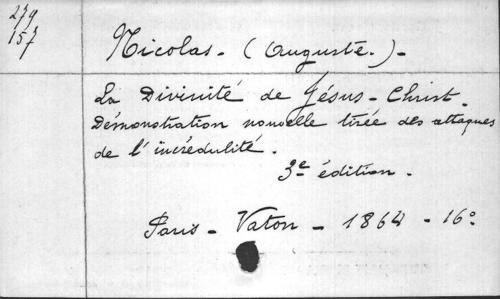 279
157
Nicolas - (Auguste.) -
La Divinité de Jésus - Christ.
Démonstration nouvelle tirée des attaques
de l'incrédulité.
3e édition.
Paris - Vaton - 1864 - 16º